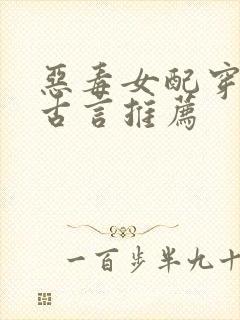 惡毒女配穿
古言推薦
一百步半九十